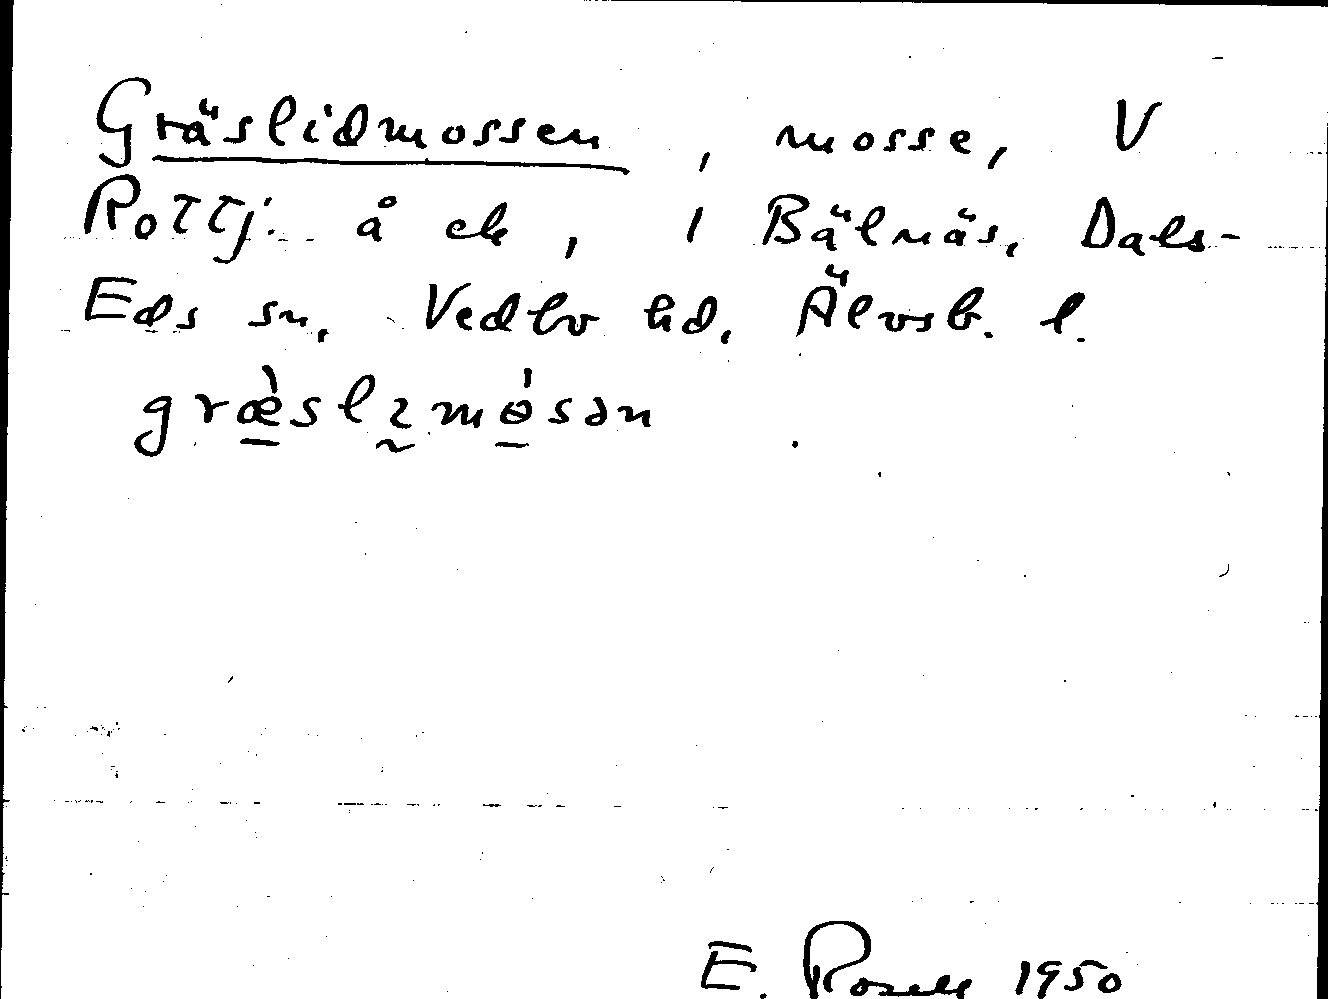 Gräslidmossen, mosse, V
Rottj. å ek, i Bälnäs, Dals-
Eds sn, Vedbo hd, Älvsb. l.
græ̀slɩmɵ́sən
E. Rosell 1950